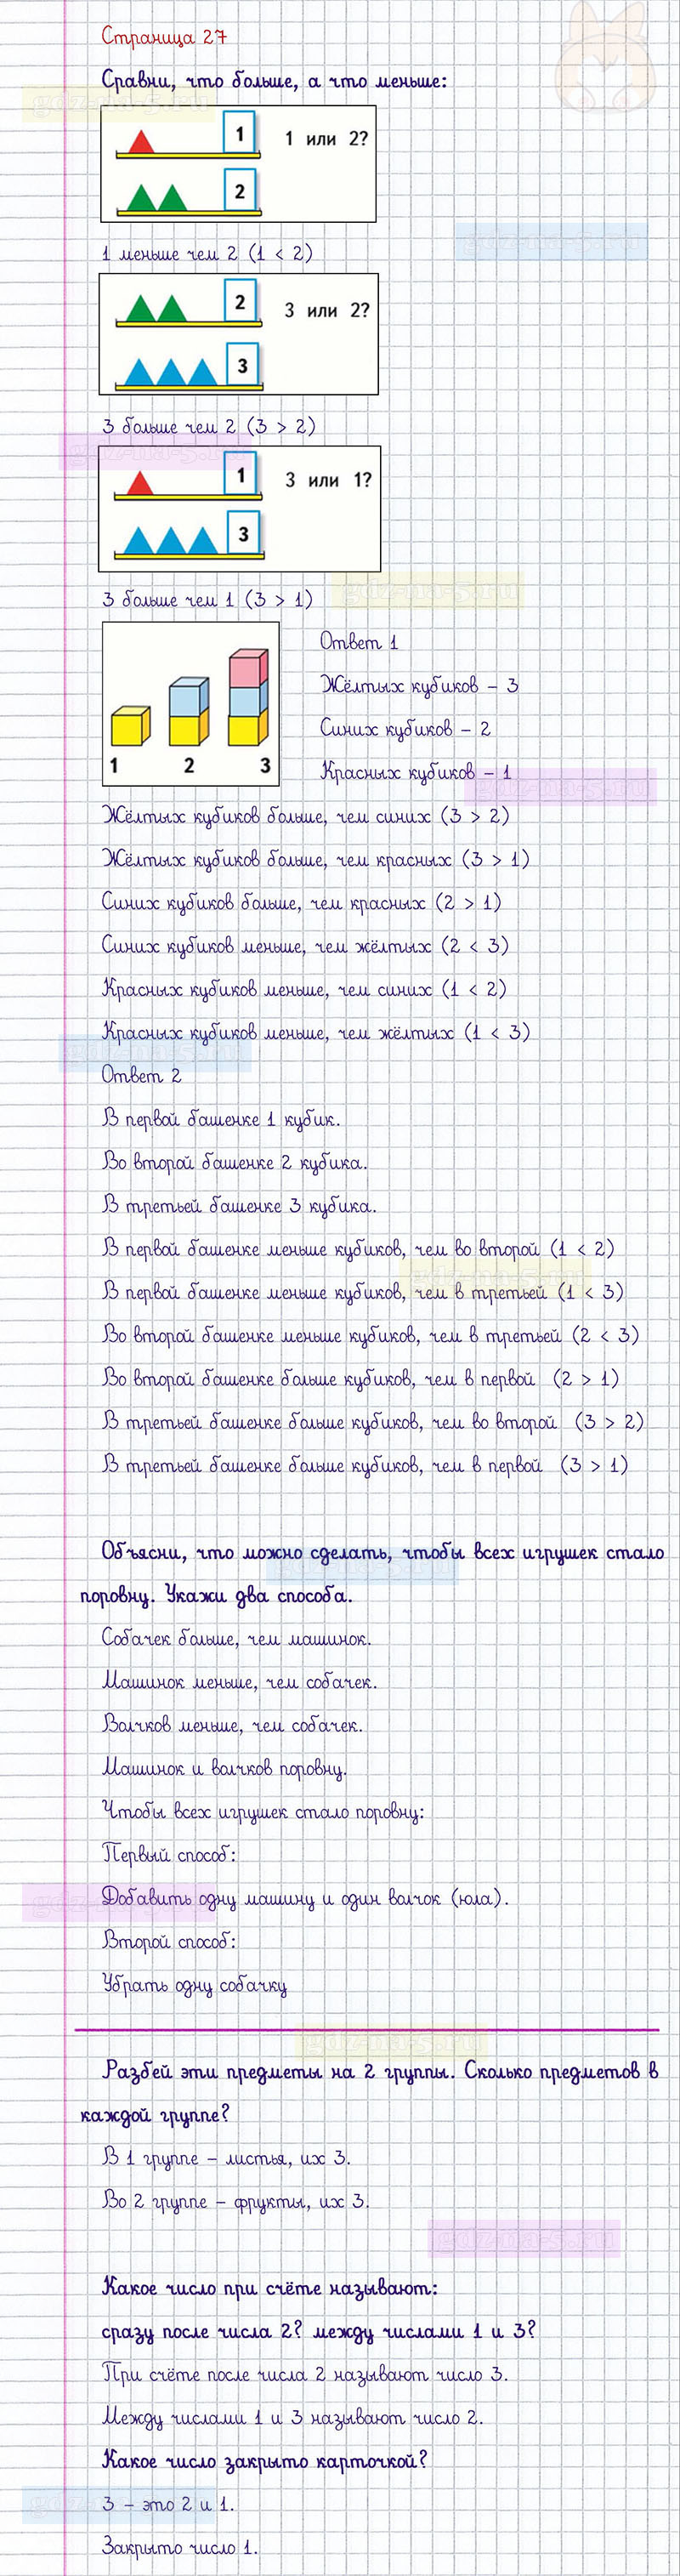 Страница 27
Сравни, что больше, а что меньше:
1
1 или 2?
2
1 меньше чем 2 (1 < 2)
2
3 или 2?
3
3 больше чем 2 (3 > 2)
1
3 или 1?
3
3 больше чем 1 (3 > 1)
1 2 3
Ответ 1
Жёлтых кубиков – 3
Синих кубиков – 2
Красных кубиков – 1
Жёлтых кубиков больше, чем синих (3 > 2)
Жёлтых кубиков больше, чем красных (3 > 1)
Синих кубиков больше, чем красных (2 > 1)
Синих кубиков меньше, чем жёлтых (2 < 3)
Красных кубиков меньше, чем синих (1 < 2)
Красных кубиков меньше, чем жёлтых (1 < 3)
Ответ 2
В первой башенке 1 кубик.
Во второй башенке 2 кубика.
В третьей башенке 3 кубика.
В первой башенке меньше кубиков, чем во второй (1 < 2)
В первой башенке меньше кубиков, чем в третьей (1 < 3)
Во второй башенке меньше кубиков, чем в третьей (2 < 3)
Во второй башенке больше кубиков, чем в первой (2 > 1)
В третьей башенке больше кубиков, чем во второй (3 > 2)
В третьей башенке больше кубиков, чем в первой (3 > 1)
Объясни, что можно сделать, чтобы всех игрушек стало
поровну. Укажи два способа.
Собачек больше, чем машинок.
Машинок меньше, чем собачек.
Волчков меньше, чем собачек.
Машинок и волчков поровну.
Чтобы всех игрушек стало поровну:
Первый способ:
Добавить одну машину и один волчок (юла).
Второй способ:
Убрать одну собачку
Разбей эти предметы на 2 группы. Сколько предметов в
каждой группе?
В 1 группе – листья, их 3.
Во 2 группе – фрукты, их 3.
Какое число при счёте называют:
сразу после числа 2? между числами 1 и 3?
При счёте после числа 2 называют число 3.
Между числами 1 и 3 называют число 2.
Какое число закрыто карточкой?
3 – это 2 и 1.
Закрыто число 1.